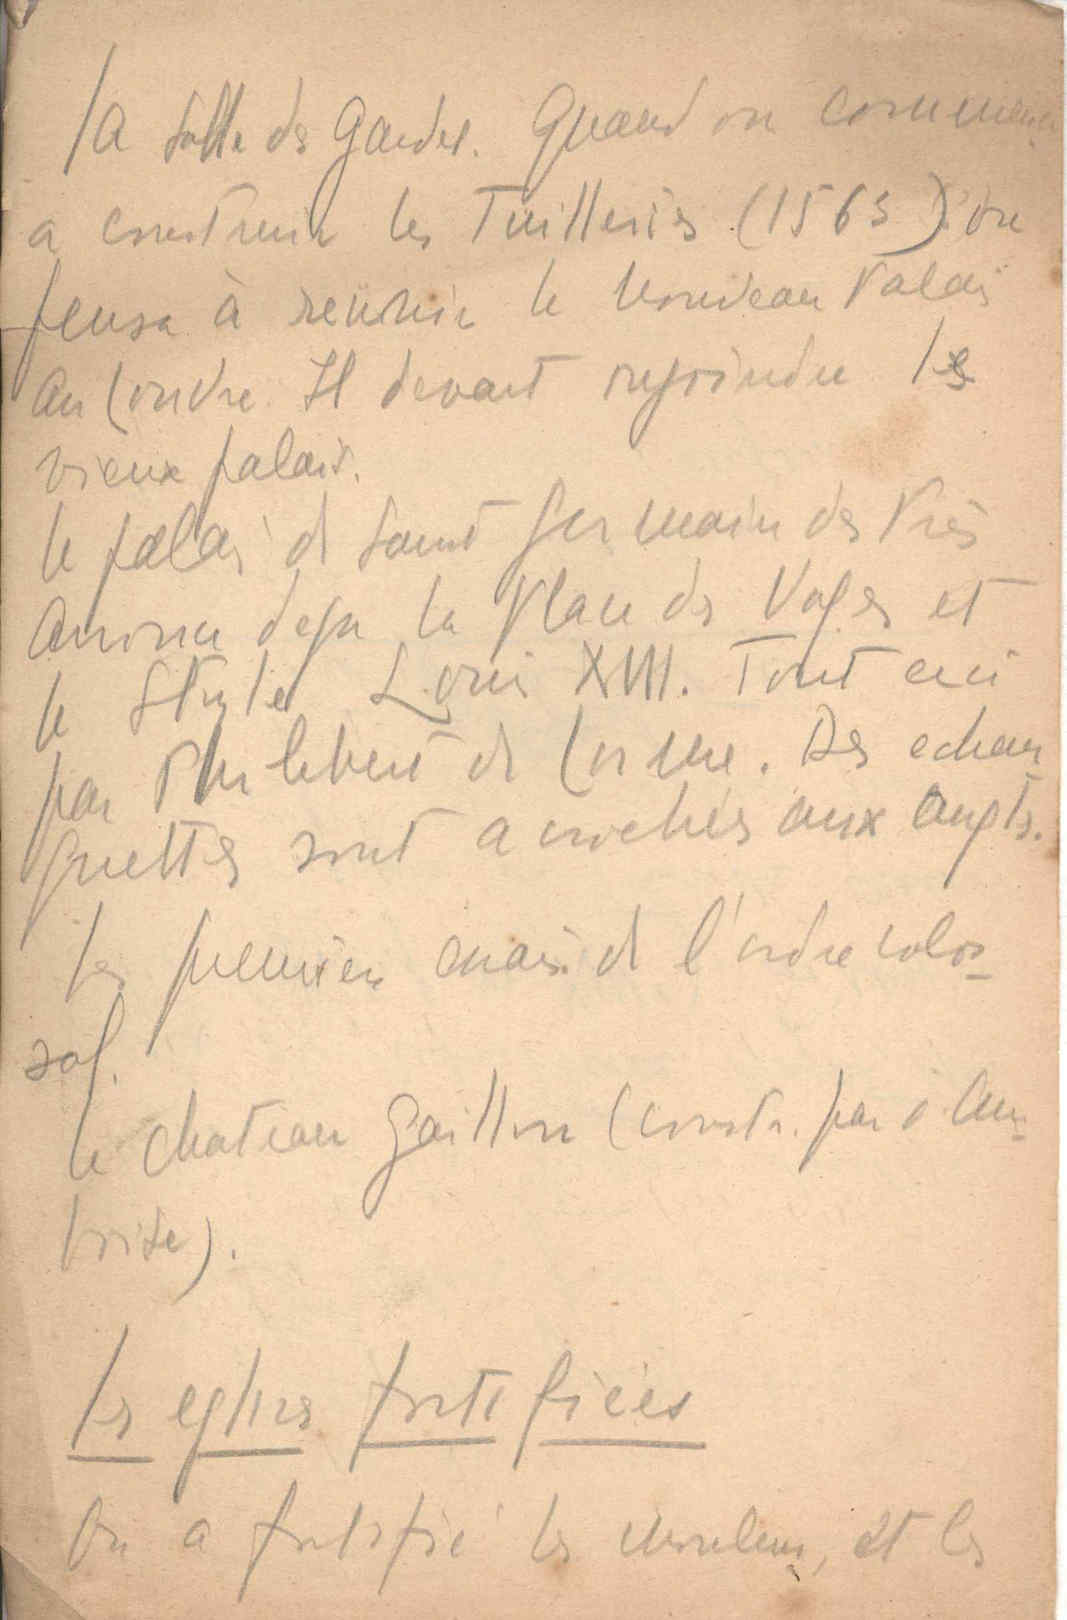 la salle des Gardes. Quand on commença
a construire les Tuilleries (1563) on
pensa à reunir le nouveau Palais
au Louvre. Il devait rejoindre le
vieux palais.
le palais de Saint Germain des Près
annonce deja la Place des Vosges et
le style Louis XIII. Tout ceci
par Philebert de Lorme. Des echau
guettes sont acrochés aux angles.
les premiers essais de l'ordre colos-
sal.
le chateau Gaillon (constr. par d'Am-
boise).
les eglises fortifiées
On a fortifié les moulins, et les